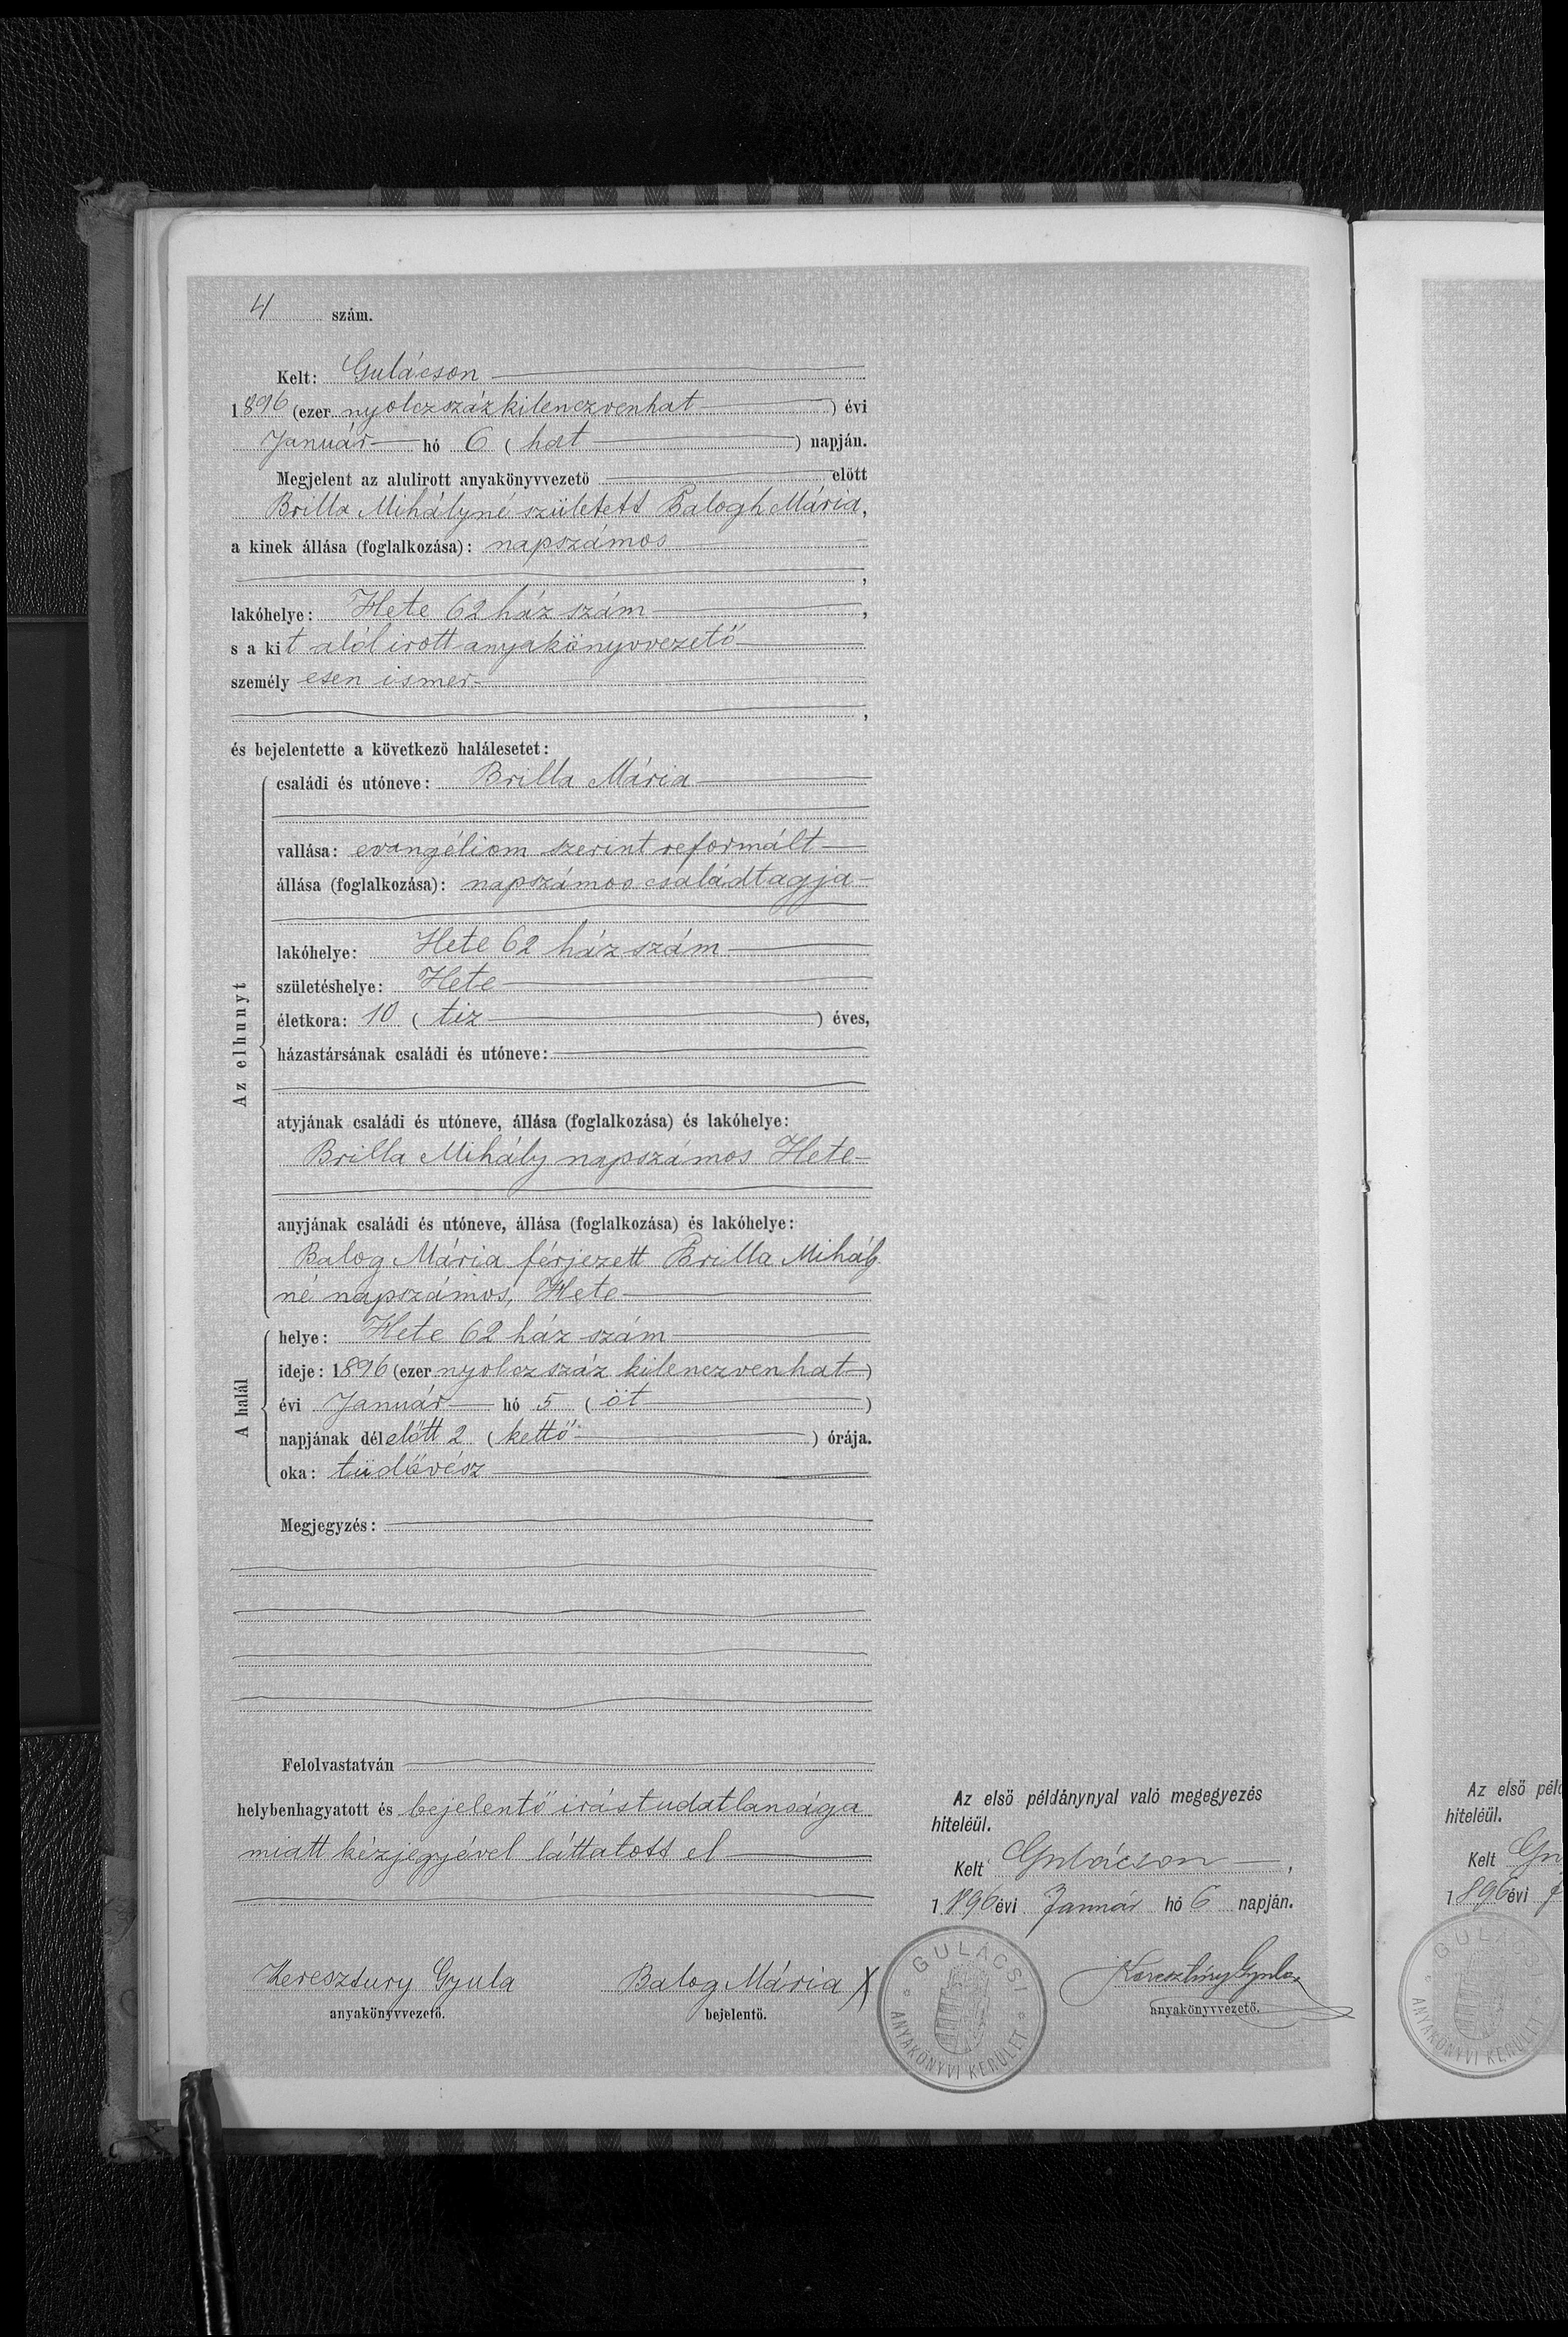 4 szám.
Kelt: Gulácson
1896 (ezer nyolczszázkilenczvenhat) évi
Január hó 6 (hat) napján.
Megjelent az alulirott anyakönyvvezető előtt
Brilla Mihályné született Balogh Mária,
a kinek állása (foglalkozása): napszámos
,
lakóhelye: Hete 62 ház szám,
s a kit alól irott anyakönyvvezető
személyesen ismer
,
és bejelentette a következő halálesetet:
Az elhunyt
családi és utóneve: Brilla Mária
vallása: evangéliom szerint reformált
állása (foglalkozása): napszámos családtagja
lakóhelye: Hete 62 ház szám
születéshelye: Hete
életkora: 10 (tiz) éves,
házastársának családi és utóneve:
atyjának családi és utóneve, állása (foglalkozása) és lakóhelye:
Brilla Mihály napszámos Hete
anyjának családi és utóneve, állása (foglalkozása) és lakóhelye:
Balog Mária férjezett Brilla Mihály
né napszámos, Hete
A halál
helye: Hete 62 ház szám
ideje: 1896 (ezer nyolcz száz kilenczvenhat)
évi Január hó 5 (öt)
napjának délelőtt 2 (kettő) órája.
oka: tüdővész
Megjegyzés:
Felolvastatván
helybenhagyatott és bejelentő irástudatlansága
miatt kézjegyével láttatott el
Keresztury Gyula
anyakönyvvezető.
Balog Mária X
bejelentő.
Az első példánynyal való megegyezés
hiteléül.
Kelt Gulácson,
1896 évi Január hó 6 napján.
GULÁCSI
ANYAKÖNYVI KERÜLET
Keresztúry Gyula
anyakönyvvezető.
Az első péld
hiteléül.
Kelt Gu
1896 évi J
GULÁCSI
ANYAKÖNYVI KERÜLET